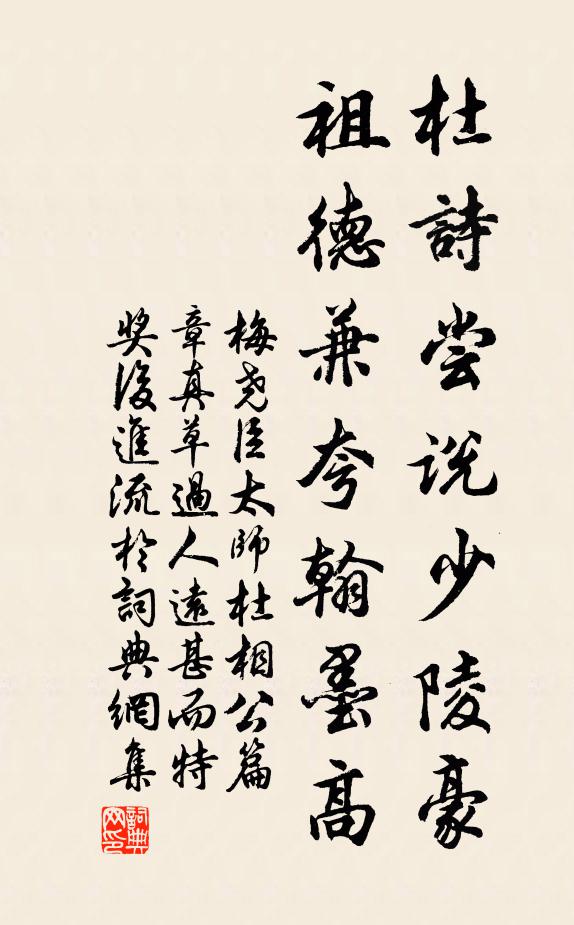 杜詩尝说少陵豪
祖德兼夸翰墨高
梅尧臣太師杜相公篇
章真草過人遠甚而特
奖後進流於詞典網集
詞典网印